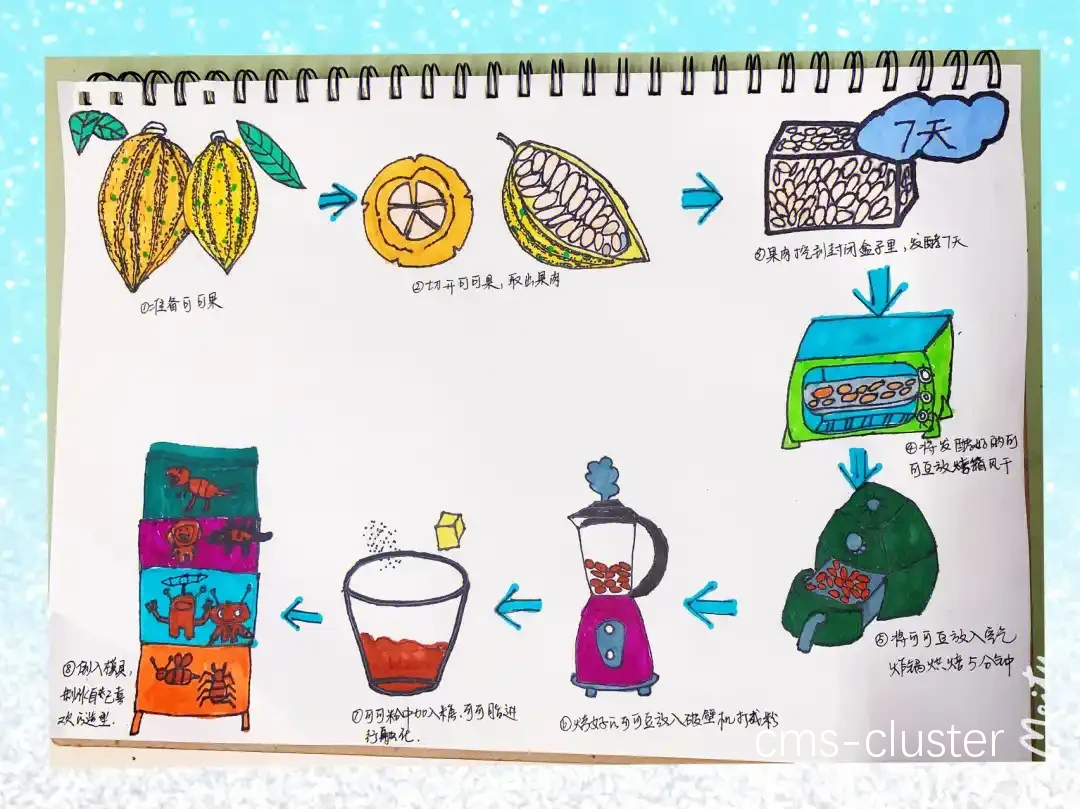 ①准备可可果
②切开可可果,取出果肉
7天
③果肉挖到封闭盒子里,发酵7天
④将发酵好的可
可豆放烤箱风干
⑤将可可豆放入空气
炸锅烘焙5分钟
⑥烤好的可可豆放入破壁机打成粉
⑦可可粉中加入糖、可可脂进
行融化.
⑧倒入模具,
制作自己喜
欢的造型.
cms-cluster
Meitu